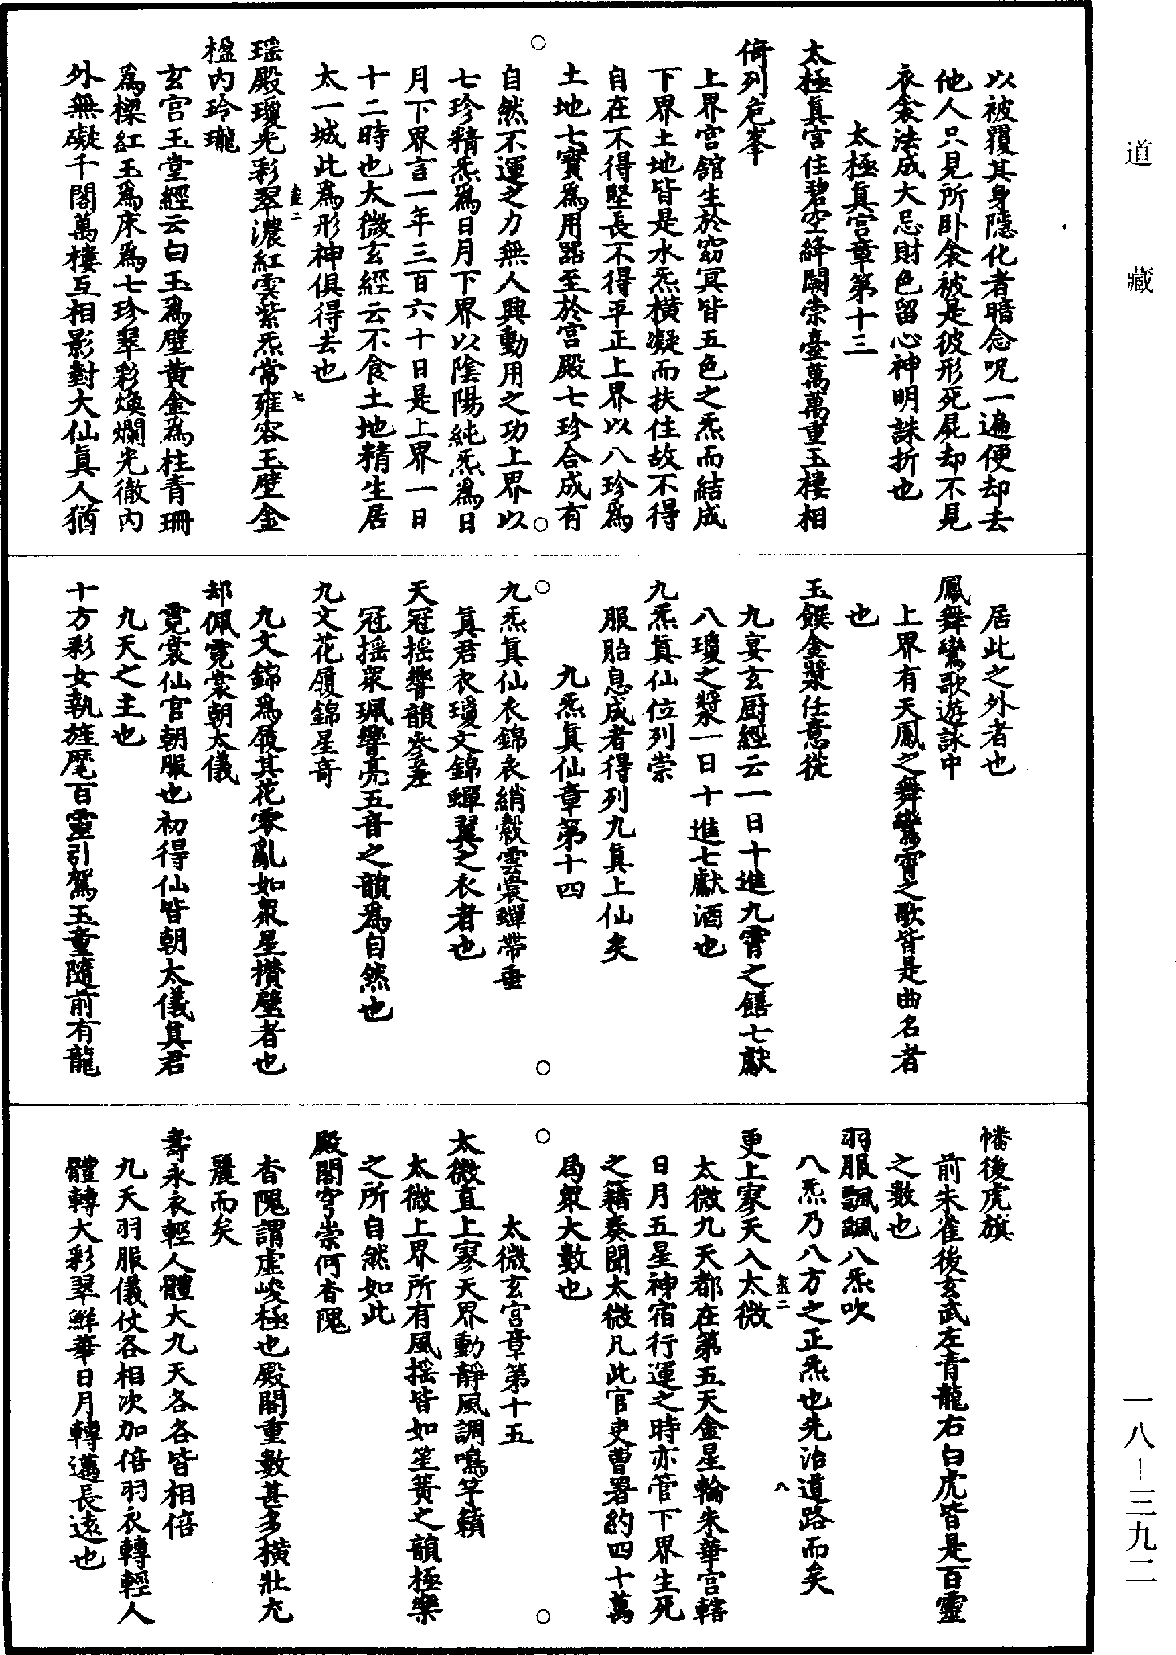 道藏
以被覆其身隱化者暗念呪一遍便却去
他人只見所卧衾被是彼形死屍却不見
衣衾法成大忌財色留心神明誅折也
太極真宮章第十三
太極真宮住碧空絳闕崇臺萬萬重玉樓相
倚列危峯
上界宮館生於窈冥皆五色之炁而結成
下界土地皆是水炁橫凝而扶住故不得
自在不得堅長不得平正上界以八珍爲
土地七寶爲用器至於宮殿七珍合成有
自然不運之力無人興動用之功上界以
七珍精炁爲日月下界以陰陽純炁爲日
月下界言一年三百六十日是上界一日
十二時也太微玄經云不食土地精生居
太一城此爲形神俱得去也
瑶殿瓊光彩翠濃紅雲紫炁常雍容玉壁金
楹内玲瓏
玄宮玉堂經云白玉爲壁黃金爲柱青珊
爲樑紅玉爲床爲七珍翠彩煥爛光徹内
外無礙千閣萬樓互相影對大仙真人猶
居此之外者也
鳳舞鸞歌遊詠中
上界有天鳳之舞鸞霄之歌皆是曲名者
也
玉饌金漿任意從
九宴玄厨經云一日十進九霄之饍七獻
八瓊之漿一日十進七獻酒也
九炁真仙位列崇
服胎息成者得列九真上仙矣
九炁真仙章第十四
九炁真仙衣錦衣綃縠雲裳蟬帶垂
真君衣瓊文錦蟬翼之衣者也
天冠揺響韻參差
冠揺衆珮響亮五音之韻爲自然也
九文花履錦星奇
九文錦爲履其花零亂如衆星攢壁者也
却佩霓裳朝太儀
霓裳仙官朝服也初得仙皆朝太儀真君
九天之主也
十方彩女執旌麾百靈引駕玉童隨前有龍
幡後虎旗
前朱雀後玄武左青龍右白虎皆是百靈
之數也
羽服飄飄八炁吹
八炁乃八方之正炁也先治道路而矣
更上寥天入太微
太微九天都在第五天金星輪朱華宮轄
日月五星神宿行運之時亦管下界生死
之籍奏聞太微凡此官吏曹署約四十萬
爲衆大數也
太微玄宮章第十五
太微直上寥天界動靜風調鳴竽籟
太微上界所有風揺皆如笙簧之韻極樂
之所自然如此
殿閣穹崇何杳隗
杳隗謂虛峻極也殿閣重數甚多橫壯尢
麗而矣
壽永衣輕人體大九天各各皆相倍
九天羽服儀仗各相次加倍羽衣轉輕人
體轉大彩翠鮮華日月轉邁長遠也
一八-三九二